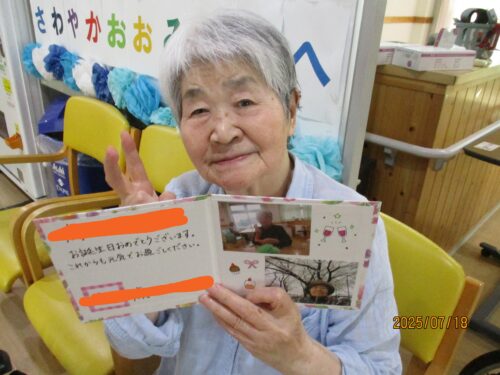 さわやかおお
へ
お誕生日おめでとうございます。
これからも元気でお過ごしください。
2025/07/18